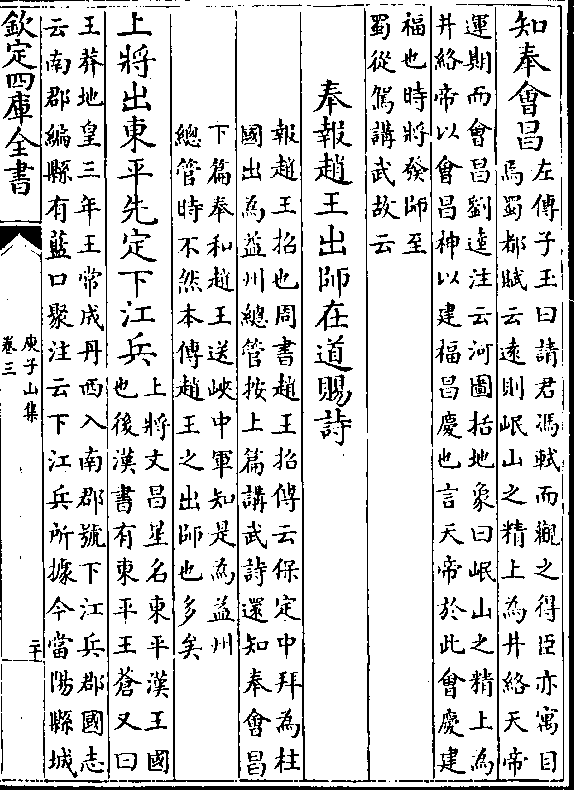 知奉會昌
左傳子玉曰請君馮軾而觀之得臣亦寓目
焉蜀都賦云遠則岷山之精上為井絡天帝
運期而會昌劉逵注云河圖括地象曰岷山之精上為
井絡帝以會昌神以建福昌慶也言天帝於此會慶建
福也時將發師至
蜀從駕講武故云
奉報趙王出師在道賜詩
報趙王招也周書趙王招傳云保定中拜為柱
國出為益州總管按上篇講武詩還知奉會昌
下篇奉和趙王送峽中軍知是為益州
總管時不然本傳趙王之出師也多矣
上將出東平先定下江兵
上將文昌星名東平漢王國
也後漢書有東平王蒼又曰
王莽地皇三年王常成丹西入南郡號下江兵郡國志
云南郡編縣有藍口聚注云下江兵所據今當陽縣城
欽定四庫全書
庾子山集
卷三
二十